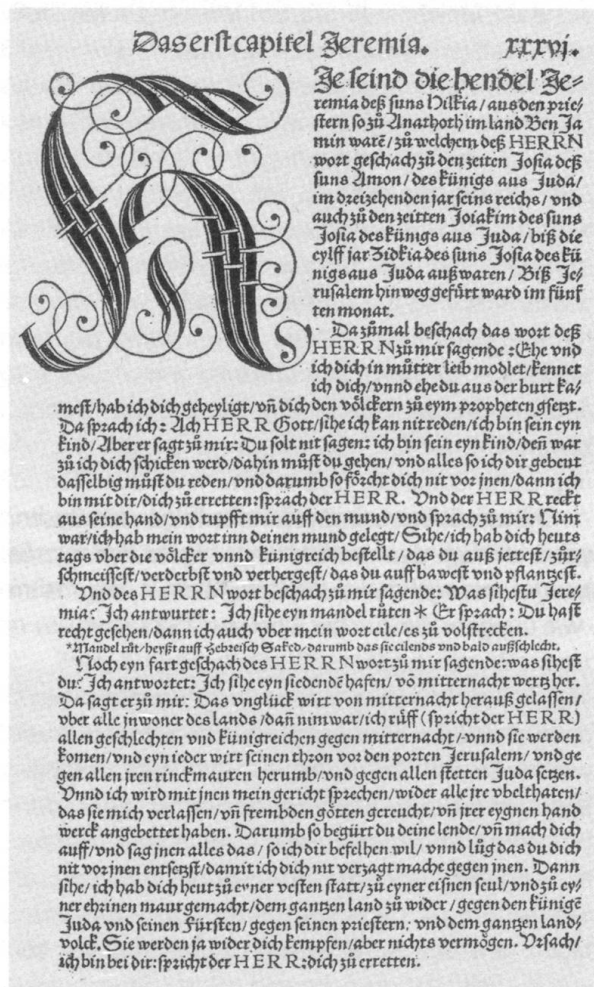 Das erst capitel Jeremia. xxxvi.
Je seind die hendel Je⸗
remia deß suns Hilkia/ aus den prie⸗
stern so zů Anathoth im land Ben Ja
min warẽ/ zů welchem deß HERRN
wort geschach zů den zeiten Josia deß
suns Amon/ des künigs aus Juda/
im dreizehenden jar seins reichs/ vnd
auch zů den zeitten Joiakim des suns
Josia des künigs aus Juda/ biß die
eylff jar Zidkia des suns Josia des kü
nigs aus Juda auß waren/ Biß Je⸗
rusalem hinweg gefürt ward im fünf
ten monat.
Da zůmal beschach das wort deß
HERRN zů mir sagende: Ehe vnd
ich dich in můtter leib modlet/ kennet
ich dich/ vnnd ehe du aus der burt ka⸗
mest/ hab ich dich geheyligt/ vñ dich den völckern zů eym propheten gsetzt.
Da sprach ich: Ach HERR Gott/ sihe ich kan nit reden/ ich bin sein eyn
kind/ Aber er sagt zů mir: Du solt nit sagen: ich bin sein eyn kind/ deñ war
zů ich dich schicken werd/ dahin můst du gehen/ vnd alles so ich dir gebeut
dasselbig můst du reden/ vnd darumb so förcht dich nit vor jnen/ dann ich
bin mit dir/ dich zů erretten: sprach der HERR. Vnd der HERR reckt
aus seine hand/ vnd tupfft mir auff den mund/ vnd sprach zů mir: Nim
war/ ich hab mein wort inn deinen mund gelegt/ Sihe/ ich hab dich heuts
tags vber die völcker vnnd künigreich bestellt/ das du auß jettest/ zür⸗
schmeissest/ verderbst vnd verhergest/ das du auff bawest vnd pflantzest.
Vnd des HERRN wort beschach zů mir sagende: Was sihestu Jere⸗
mia? Ich antwurtet: Ich sihe eyn mandel růten * Er sprach: Du hast
recht gesehen/ dann ich auch vber mein wort eile/ es zů volstrecken.
*Mandel růt/ heyßt auff Hebreisch Saked/ darumb das sie eilends vnd bald außschlecht.
Noch eyn fart geschach des HERRN wort zů mir sagende: was sihest
du? Ich antwortet: Ich sihe eyn siedendẽ hafen/ võ mitternacht wertz her.
Da sagt er zů mir: Das vnglück wirt von mitternacht herauß gelassen/
vber alle jnwoner des lands/ dañ nim war/ ich rüff (spricht der HERR)
allen geschlechten vnd künigreichen gegen mitternacht/ vnnd sie werden
komen/ vnd eyn ieder wirt seinen thron vor den porten Jerusalem/ vnd ge
gen allen jren rinckmauren herumb/ vnd gegen allen stetten Juda setzen.
Vnnd ich wird mit jnen mein gericht sprechen/ wider alle jre vbelthaten/
das sie mich verlassen/ vñ frembden götten gereucht/ vñ jrer eygnen hand
werck angebettet haben. Darumb so begürt du deine lende/ vñ mach dich
auff/ vnd sag jnen alles das/ so ich dir befelhen wil/ vnnd lůg das du dich
nit vor jnen entsetzst/ damit ich dich nit verzagt mache gegen jnen. Dann
sihe/ ich hab dich heut zů eyner vesten statt/ zů eyner eisnen seul/ vnd zů ey⸗
ner ehrinen maur gemacht/ dem gantzen land zů wider/ gegen den künigẽ
Juda vnd seinen Fürsten/ gegen seinen priestern: vnd dem gantzen land⸗
volck. Sie werden ja wider dich kempfen/ aber nichts vermögen. Vrsach/
ich bin bei dir: spricht der HERR: dich zů erretten.